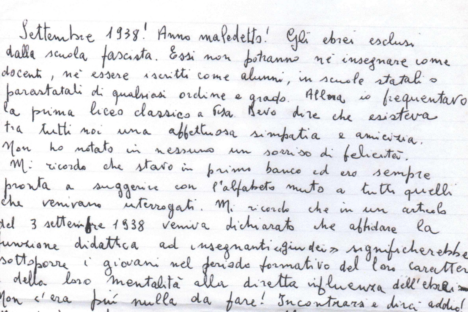 Settembre 1938! Anno maledetto! Gli ebrei esclusi
dalla scuola fascista. Essi non potranno né insegnare come
docenti, né essere iscritti come alunni, in scuole statali o
parastatali di qualsiasi ordine e grado. Allora io frequentavo
la prima liceo classico a Pisa. Devo dire che esisteva
tra tutti noi una affettuosa simpatia e amicizia.
Non ho notato in nessuno un sorriso di felicità.
Mi ricordo che stavo in primo banco ed ero sempre
pronta a suggerire con l'alfabeto muto a tutti quelli
che venivano interrogati. Mi ricordo che in un articolo
del 3 settembre 1938 veniva dichiarato che affidare la
funzione didattica ad insegnanti «giudei» significherebbe
sottoporre i giovani nel periodo formativo del loro carattere
e della loro mentalità alla diretta influenza dell'ebraismo
Non c'era più nulla da fare! Incontrarsi e dirci addio!